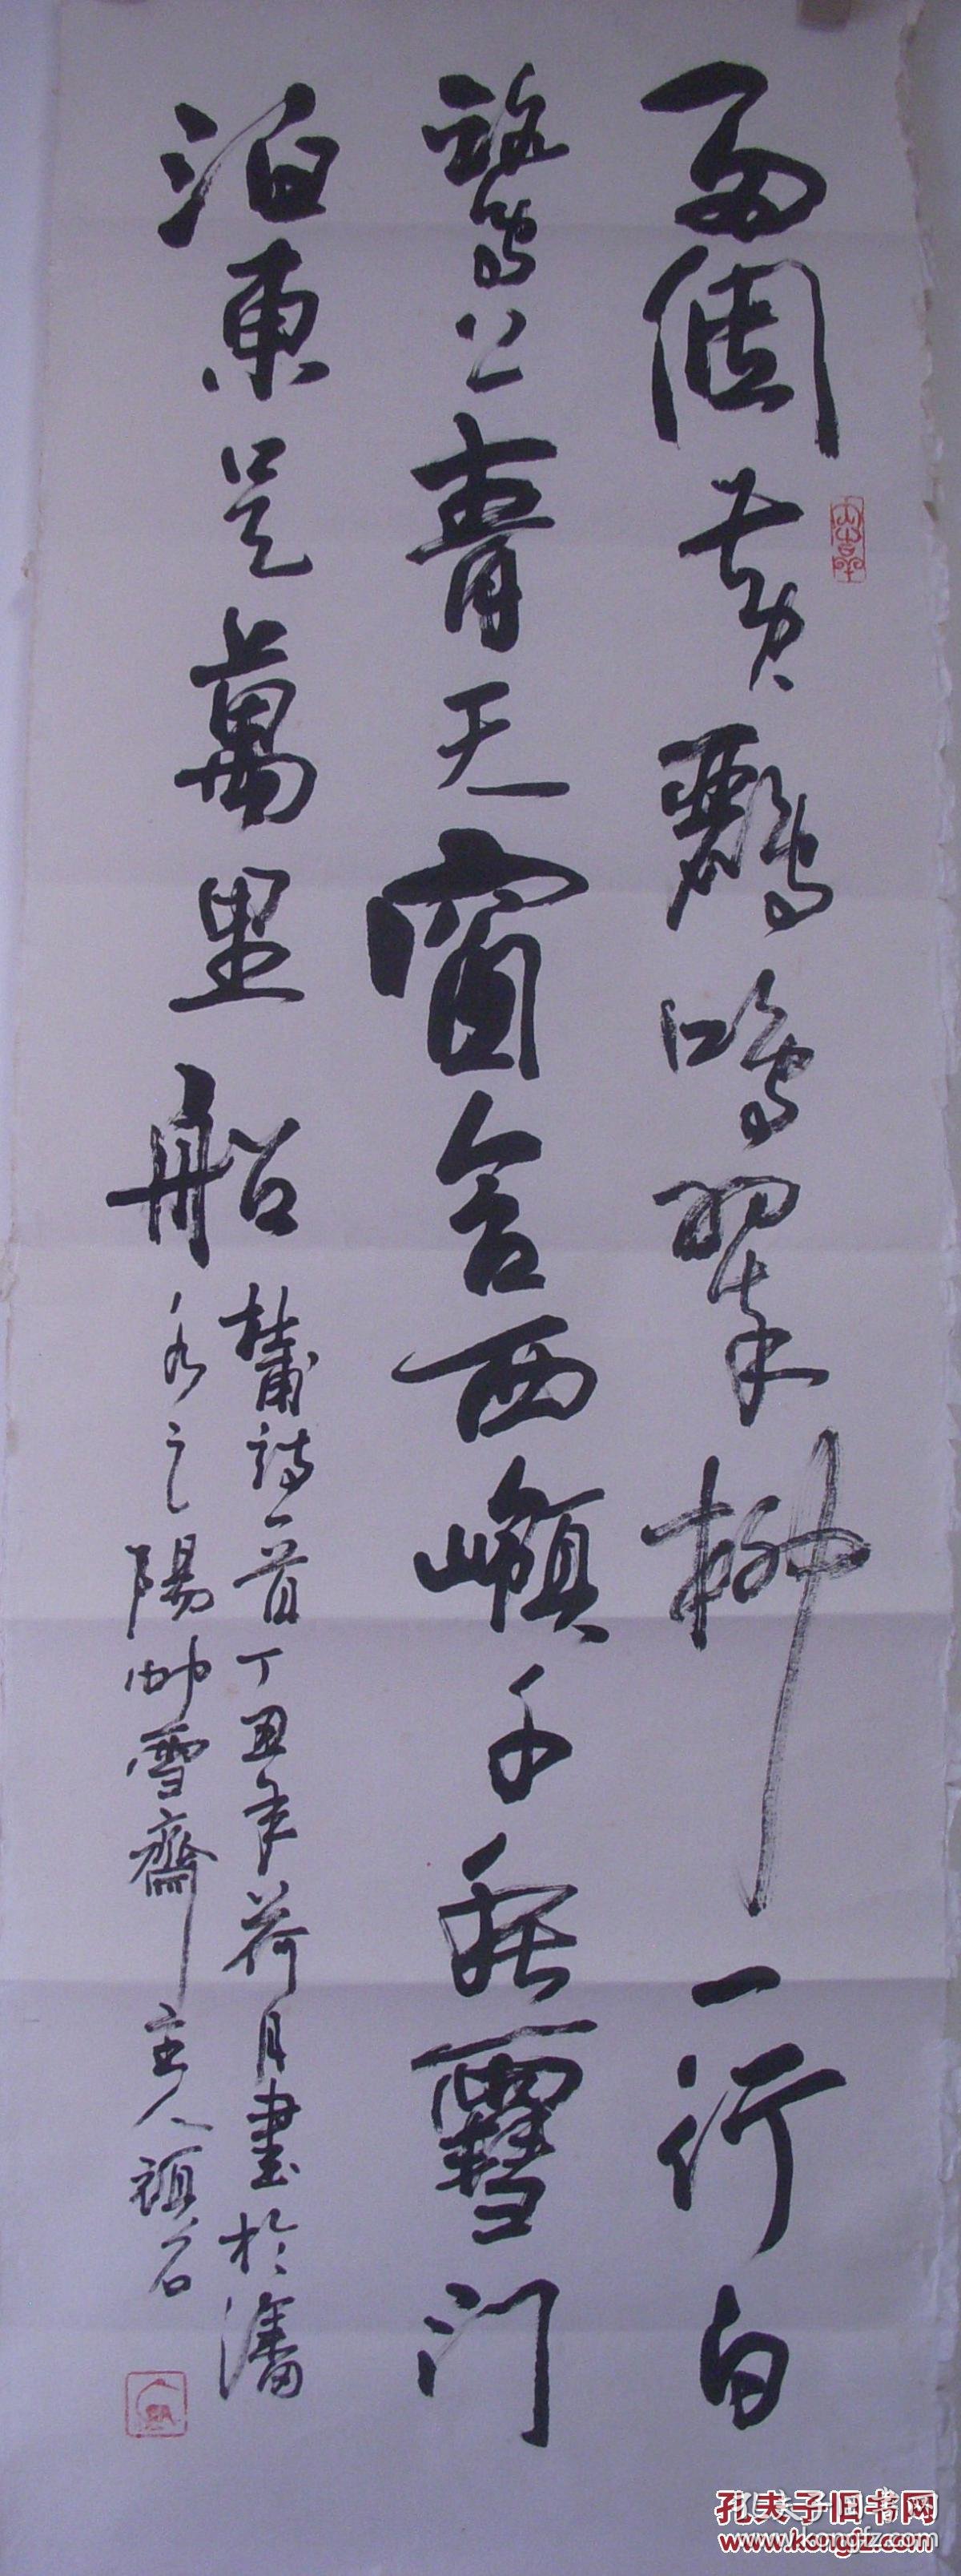 两個黄鸝鳴翠柳一行白
鷺上青天窗含西嶺千秋雪门
泊東吴萬里船
杜甫詩一首丁丑年荷月書於瀋
水之陽帅雪齋主人祖石
孔夫子旧书网
www.kongfz.com